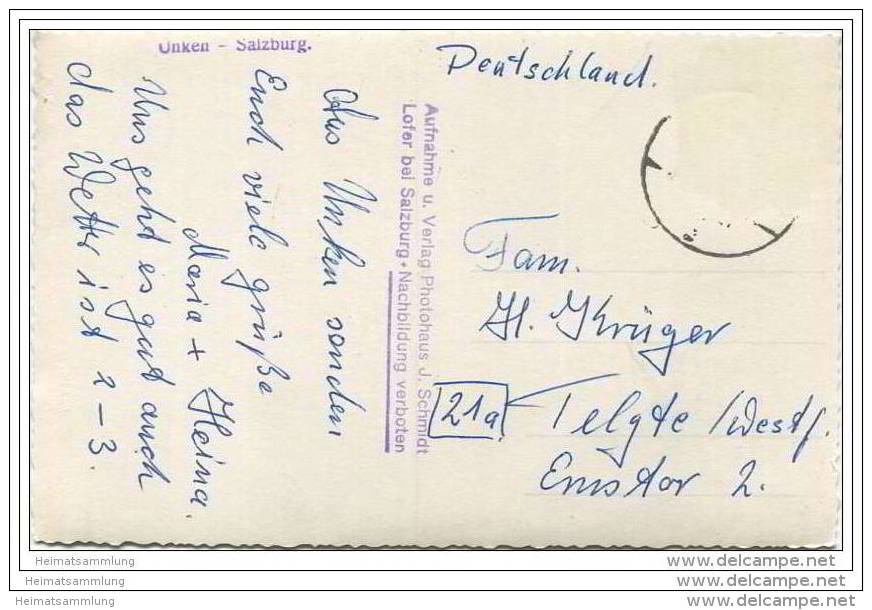 Unken - Salzburg.
Aus Unken senden
Euch viele grüße
Maria + Heina.
Uns geht es gut auch
das Wetter ist 2-3.
Aufnahme u. Verlag Photohaus J. Schmidt
Lofer bei Salzburg • Nachbildung verboten
Deutschland.
Fam.
H. Krüger
21a Telgte /Westf.
Emstor 2.
Heimatsammlung
Heimatsammlung
Heimatsammlung
delcampe.net
delcampe.net
delcampe.net